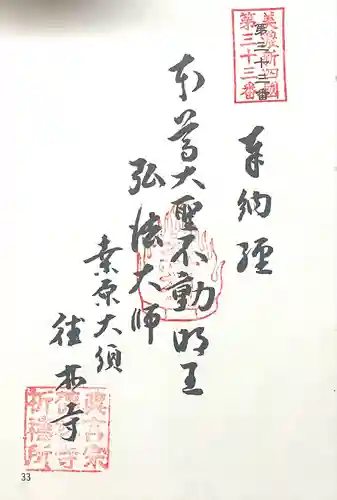 美濃新四國
第三十三番
第三十三番
奉納經
本尊大聖不動明王
弘法大師
桑原大須
徳林寺
眞言宗
徳林寺
祈禱所
33